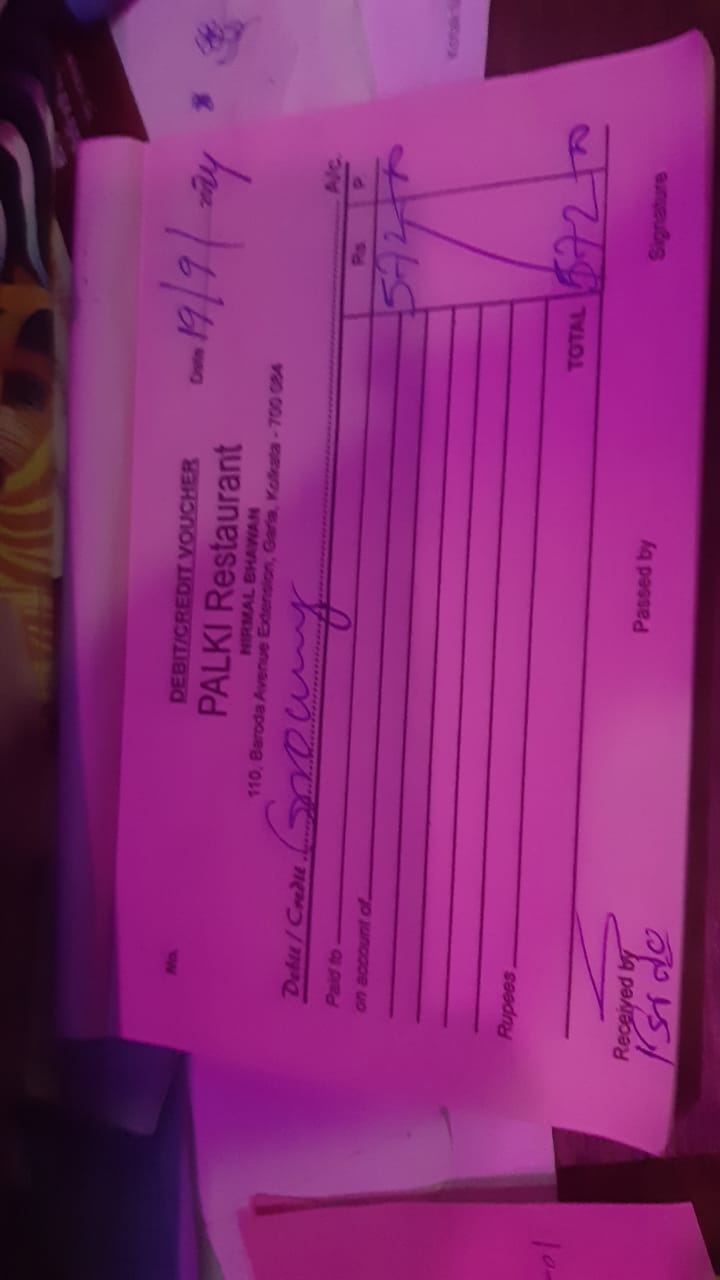 No.
DEBIT/CREDIT VOUCHER
Date 19/9/2024
PALKI Restaurant
NIRMAL BHAWAN
110, Baroda Avenue Extension, Garia, Kolkata - 700 084
Debit / Credit Grocery A/c.
Paid to
Rs P.
on account of
572
Rupees
TOTAL 572
Received by Passed by Signature